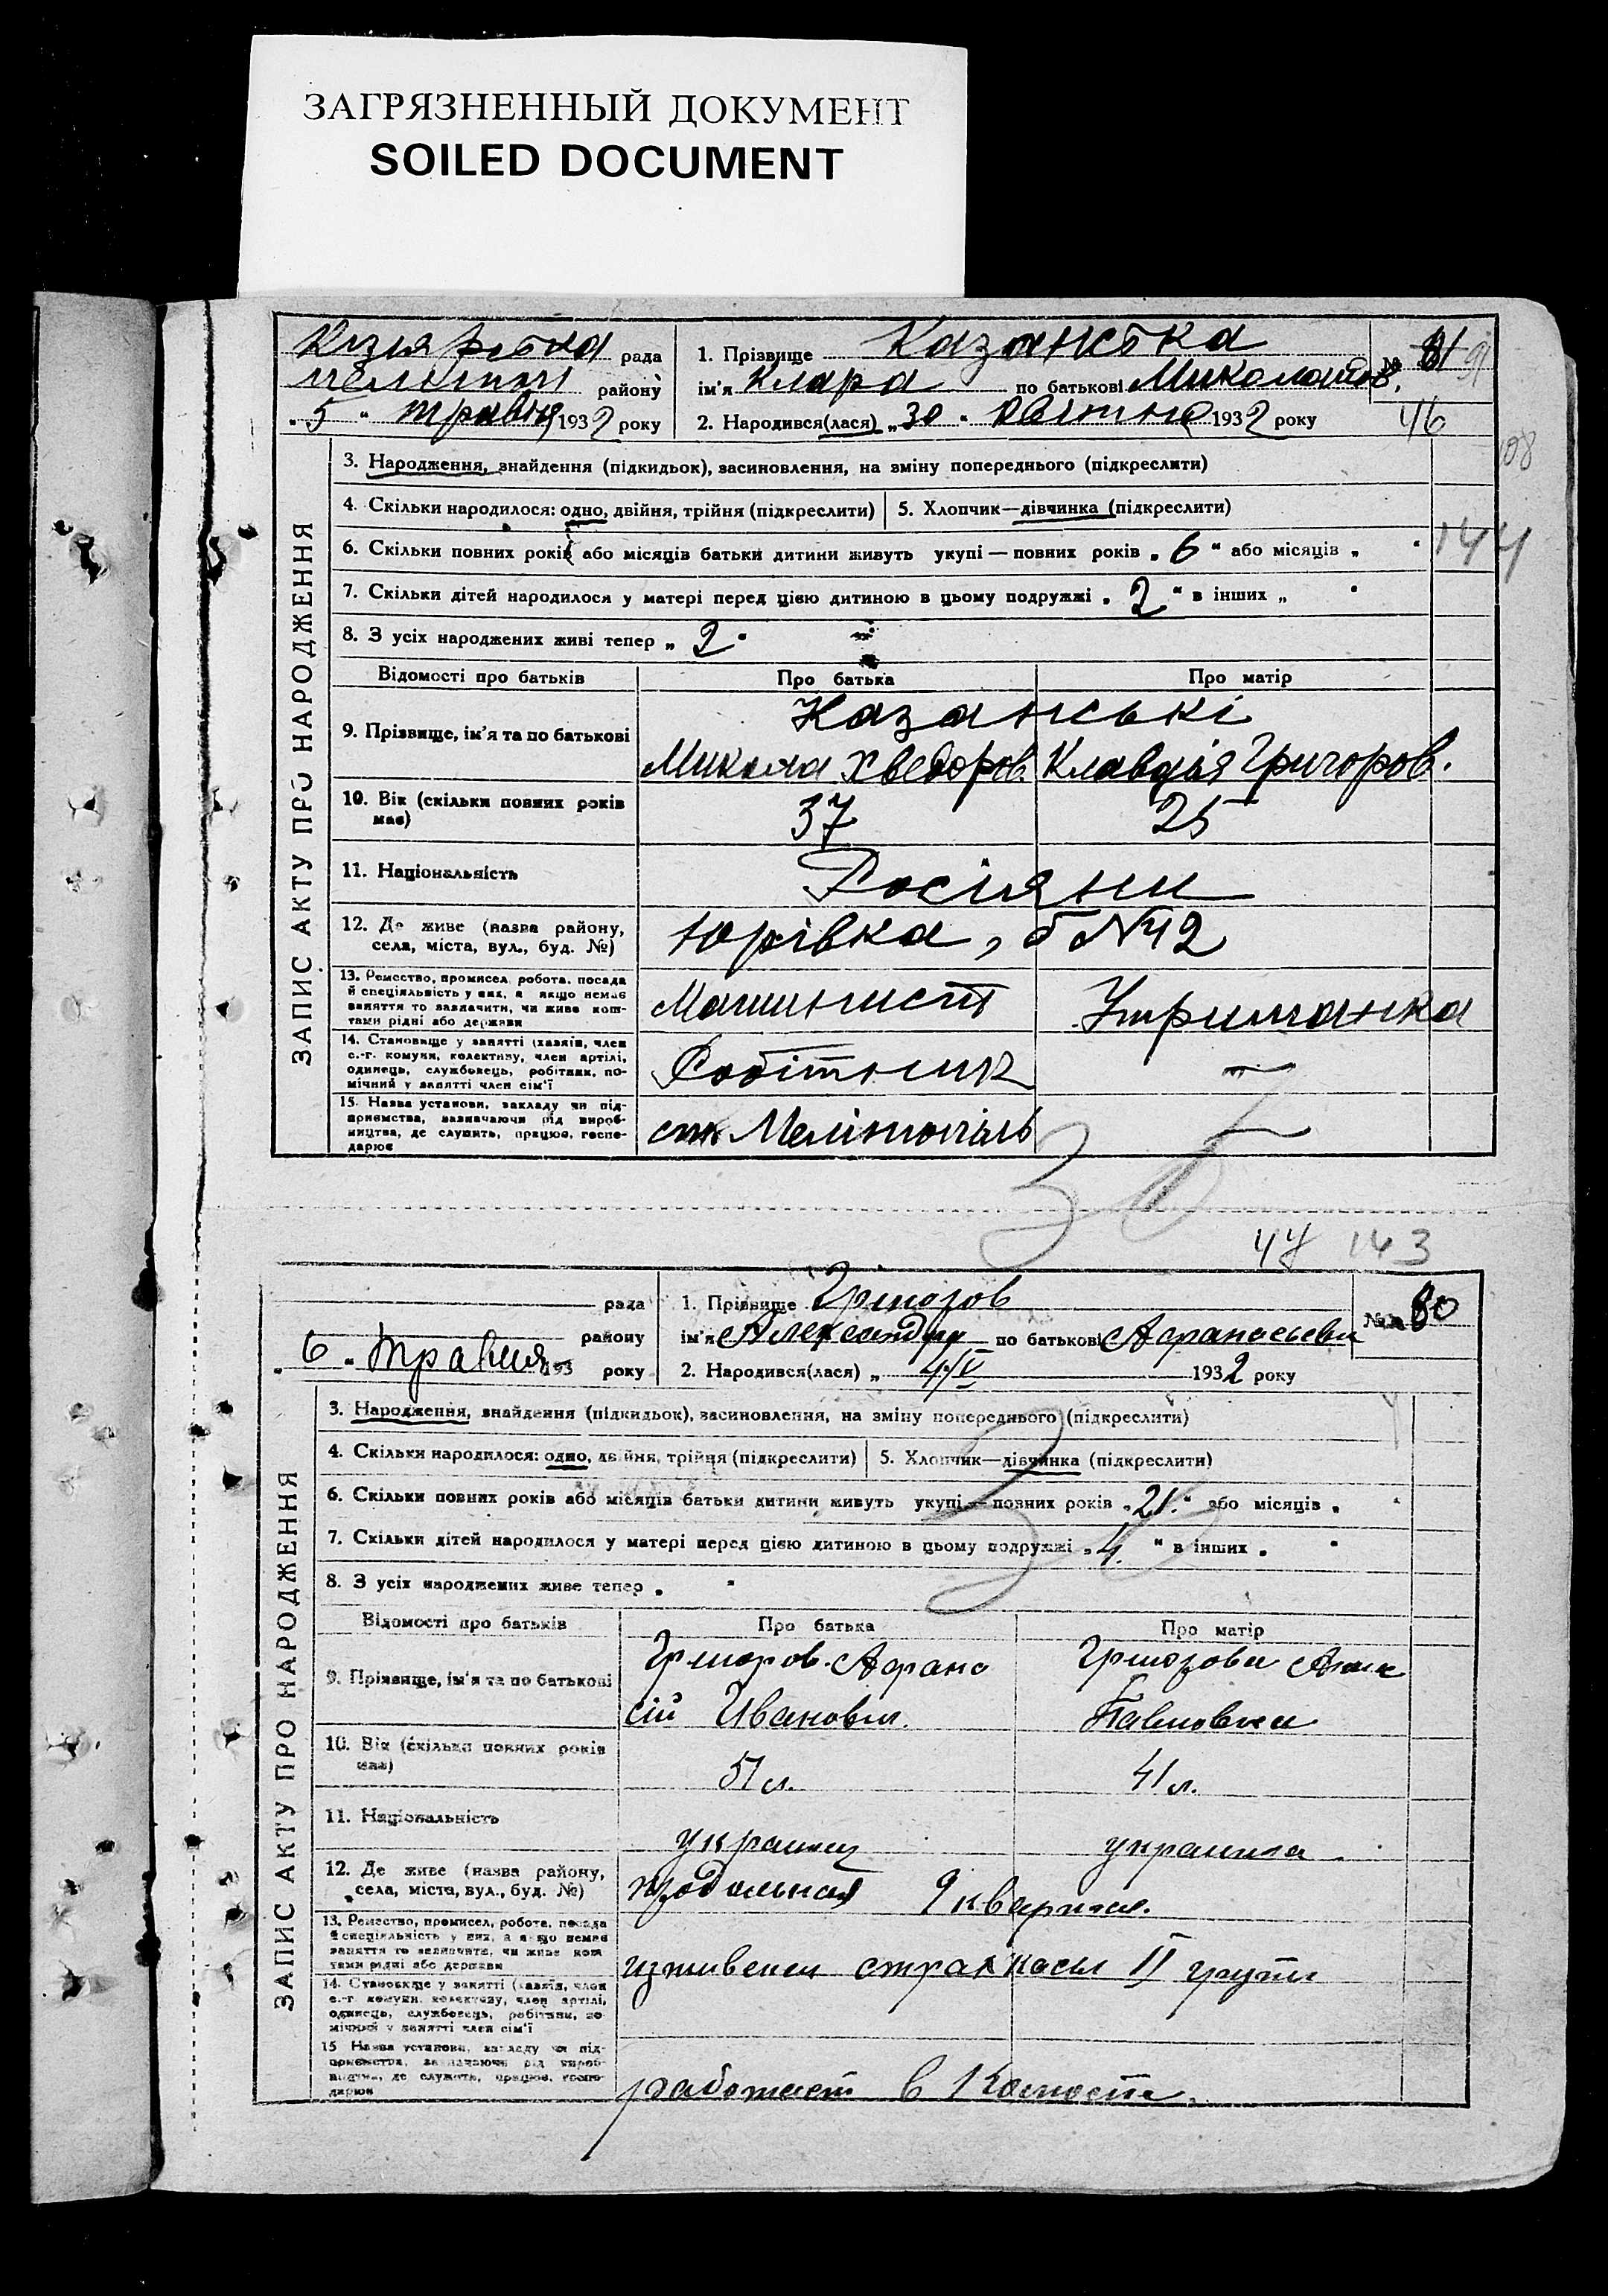 ЗАГРЯЗНЕННЫЙ ДОКУМЕНТ
SOILED DOCUMENT
рада
району
"5" травня 1932 року
1. Прізвище Казанська
ім'я Клара по батькові Миколаїв.
№ 81
2. Народився(лася) „30" квітня 1932 року
46
108
144
ЗАПИС АКТУ ПРО НАРОДЖЕННЯ
3. Народження, знайдення (підкидьок), засиновлення, на зміну попереднього (підкреслити)
4. Скільки народилося: одно, двійня, трійня (підкреслити) 5. Хлопчик—дівчинка (підкреслити)
6. Скільки повних років або місяців батьки дитини живуть укупі — повних років „6" або місяців „ "
7. Скільки дітей народилося у матері перед цією дитиною в цьому подружжі „2" в інших „ "
8. З усіх народжених живі тепер „2"
Відомості про батьків Про батька Про матір
9. Прізвище, ім'я та по батькові Казанські
Микола Хведоров. Клавдія Григоров.
10. Вік (скільки повних років має) 37 25
11. Національність Росіяни
12. Де живе (назва району, села, міста, вул., буд. №) Юрівка, б №42
13. Ремество, промисел, робота, посада й спеціяльність у них, а якщо немає заняття то зазначити, чи живе коштами рідні або держави Машиніст Утриманка
14. Становище у занятті (хазяїн, член с.-г. комуни, колективу, член артілі, одинець, службовець, робітник, помічний у занятті член сім'ї Робітник —
15. Назва установи, закладу чи підприємства, зазначаючи рід виробництва, де служить, працює, господарює ст. Мелітопіль —
47 143
рада
району
"6" травня 193 року
1. Прізвище
ім'я по батькові
№ 80
2. Народився(лася) „ 4/V 1932 року
ЗАПИС АКТУ ПРО НАРОДЖЕННЯ
3. Народження, знайдення (підкидьок), засиновлення, на зміну попереднього (підкреслити)
4. Скільки народилося: одно, двійня, трійня (підкреслити) 5. Хлопчик—дівчинка (підкреслити)
6. Скільки повних років або місяців батьки дитини живуть укупі — повних років „21" або місяців „ "
7. Скільки дітей народилося у матері перед цією дитиною в цьому подружжі „4" в інших „ "
8. З усіх народжених живе тепер „ "
Відомості про батьків Про батька Про матір
9. Прізвище, ім'я та по батькові Афана Анна
сій Иванович. Павловна
10. Вік (скільки повних років має) 51 л. 41 л.
11. Національність
12. Де живе (назва району, села, міста, вул., буд. №) 9 квартал.
13. Ремество, промисел, робота, посада й спеціяльність у них, а якщо немає заняття то зазначити, чи живе коштами рідні або держави страхкассы II групы
14. Становище у занятті (хазяїн, член с.-г. комуни, колективу, член артілі, одинець, службовець, робітник, помічний у занятті член сім'ї
15. Назва установи, закладу чи підприємства, зазначаючи рід виробництва, де служить, працює, господарює работает в